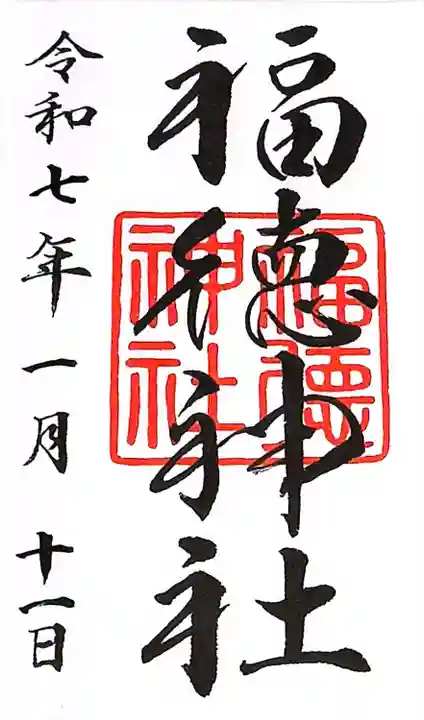 福徳神社
福徳
神社
令和七年一月十一日